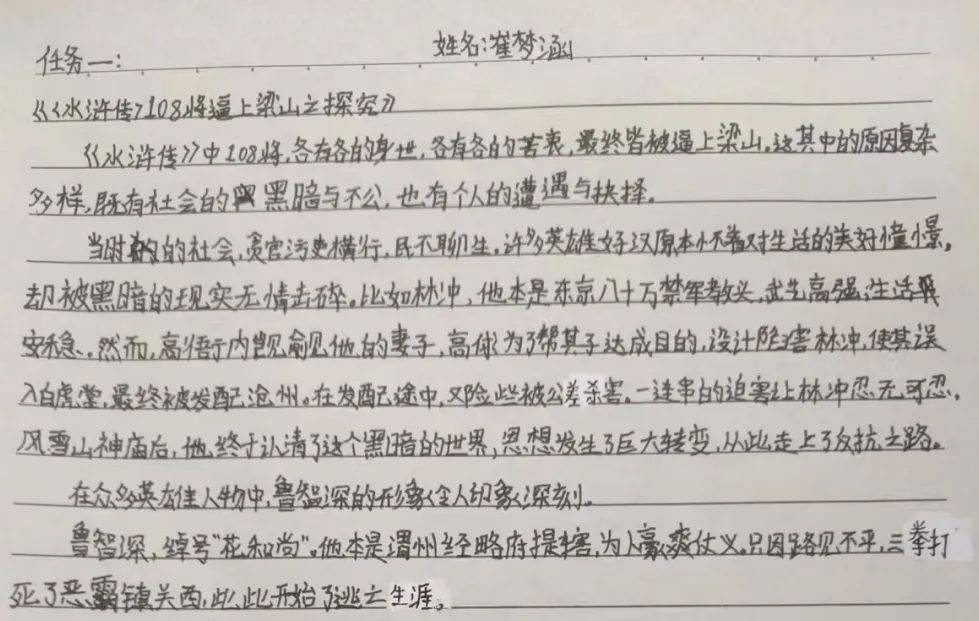 任务一: 姓名:崔梦涵
《〈水浒传〉108将逼上梁山之探究》
《水浒传》中108将,各有各的身世,各有各的苦衷,最终皆被逼上梁山。这其中的原因复杂
多样,既有社会的黑暗与不公,也有个人的遭遇与抉择。
当时的社会,贪官污吏横行,民不聊生。许多英雄好汉原本怀着对生活的美好憧憬,
却被黑暗的现实无情击碎。比如林冲,他本是东京八十万禁军教头,武艺高强,生活平
安稳。然而,高衙内觊觎他的妻子,高俅为了帮其子达成目的,设计陷害林冲,使其误
入白虎堂,最终被发配沧州。在发配途中,又险些被公差杀害。一连串的迫害让林冲忍无可忍。
风雪山神庙后,他终于认清了这个黑暗的世界,思想发生了巨大转变,从此走上了反抗之路。
在众多英雄人物中,鲁智深的形象令人印象深刻。
鲁智深,绰号"花和尚"。他本是渭州经略府提辖,为人豪爽仗义。只因路见不平,三拳打
死了恶霸镇关西,此开始了逃亡生涯。